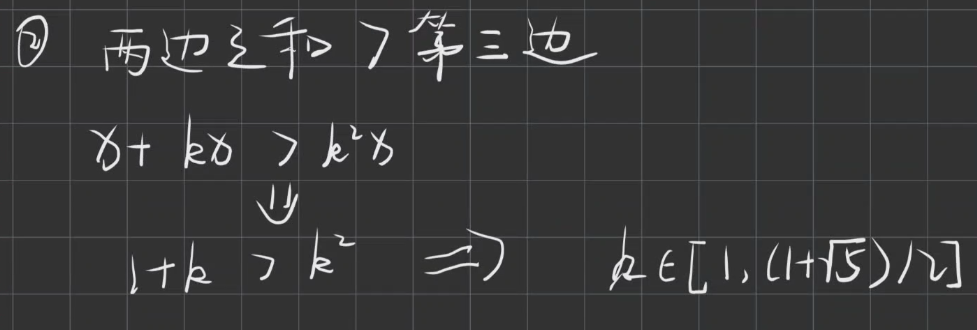 ② 两边之和 > 第三边
x + kx > k²x
⇓
1+k > k² ⇒ k∈[1, (1+√5)/2]